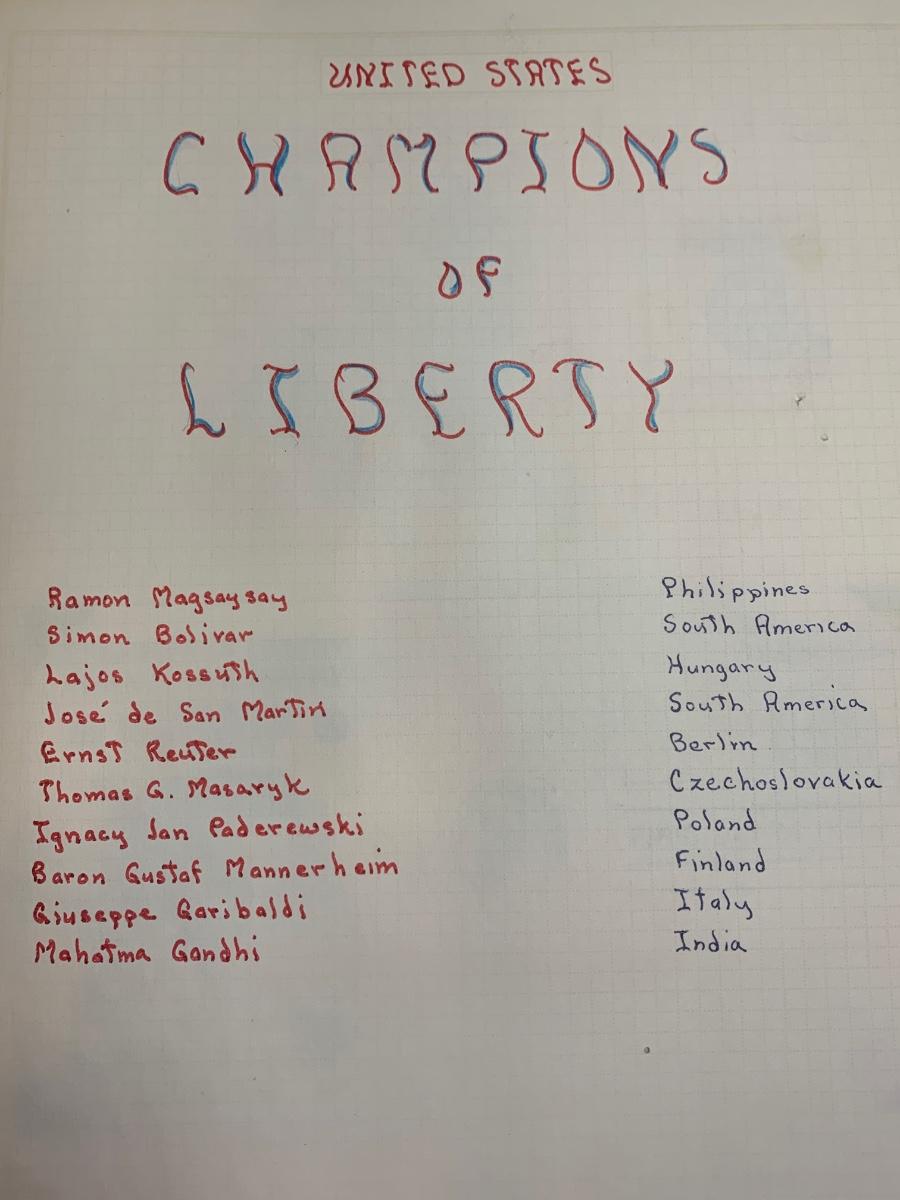 UNITED STATES
CHAMPIONS
OF
LIBERTY
Ramon Magsaysay Philippines
Simon Bolivar South America
Lajos Kossuth Hungary
José de San Martin South America
Ernst Reuter Berlin
Thomas G. Masaryk Czechoslovakia
Ignacy Jan Paderewski Poland
Baron Gustaf Mannerheim Finland
Giuseppe Garibaldi Italy
Mahatma Gandhi India